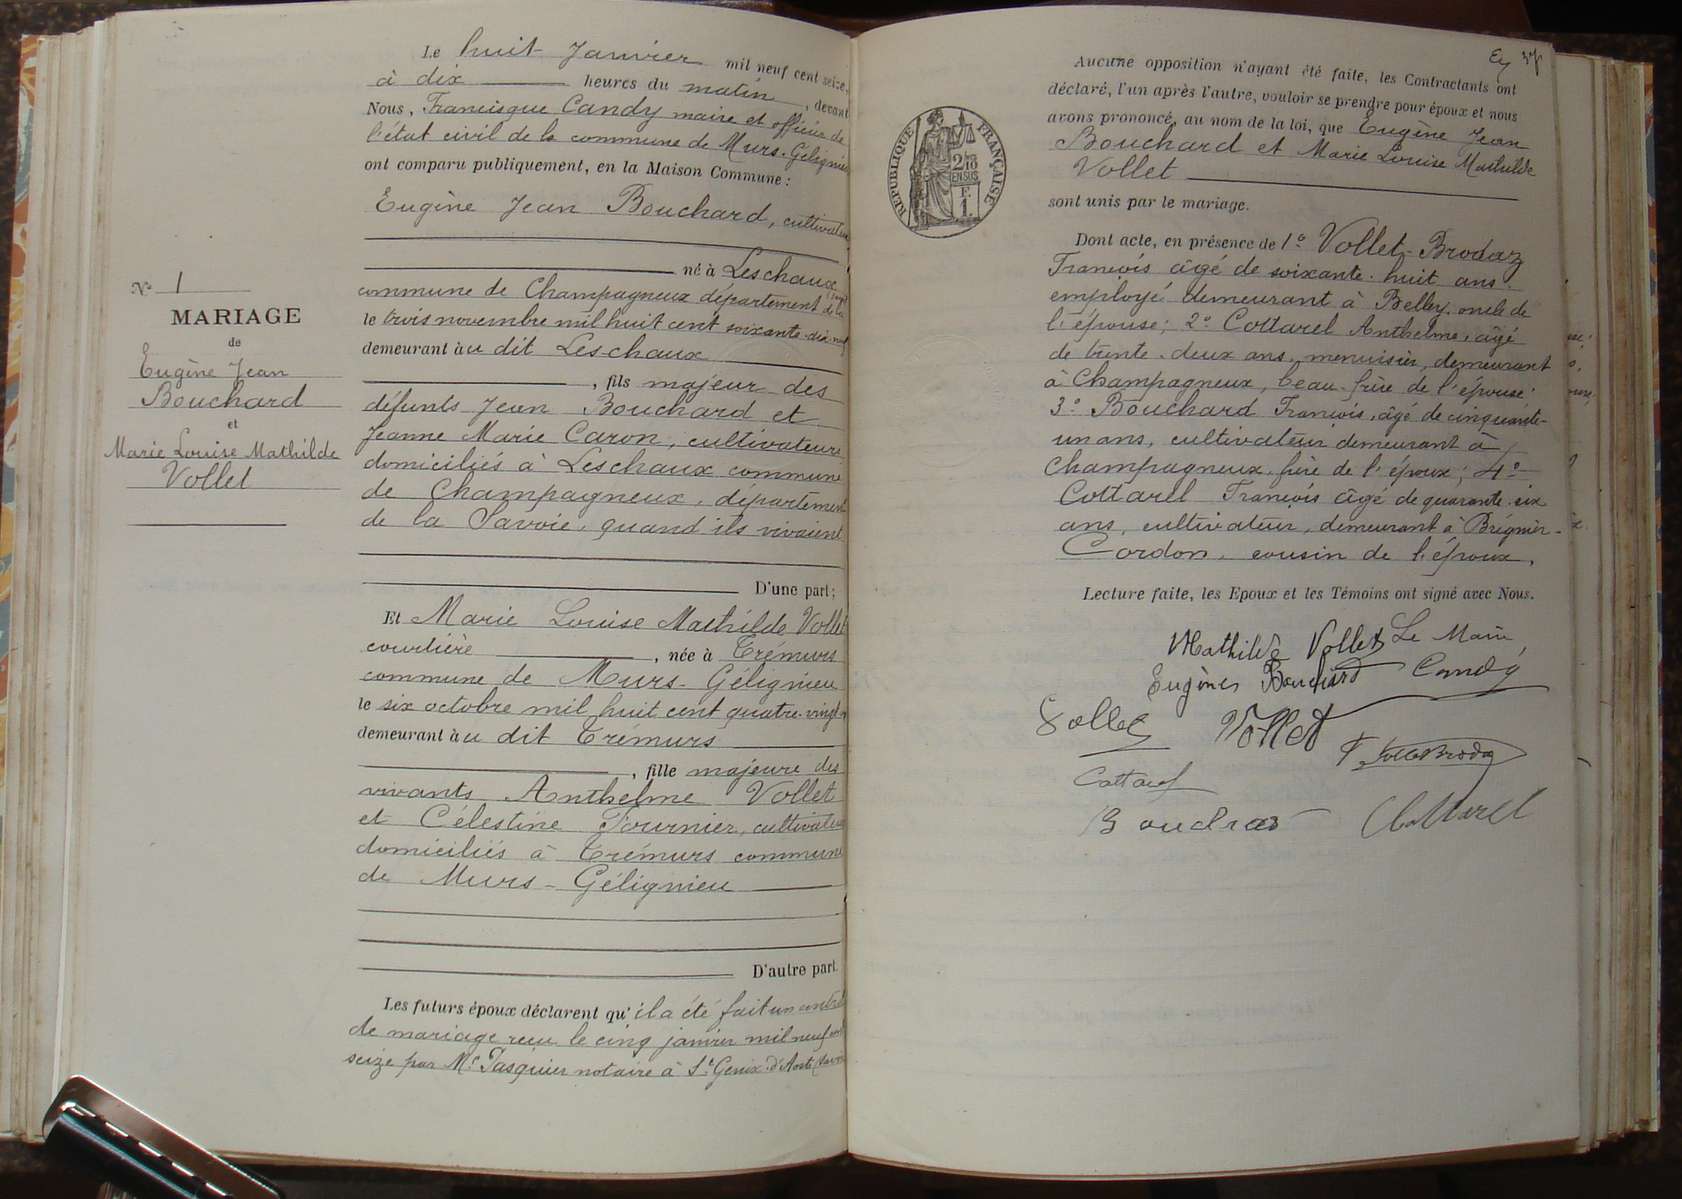 N° 1
MARIAGE
de
Eugène Jean
Bouchard
et
Marie Louise Mathilde
Vollet
Le huit Janvier mil neuf cent seize,
à dix heures du matin, devant
Nous, Francisque Candy maire et officier de
l'état civil de la commune de Murs-Gélignieu
ont comparu publiquement, en la Maison Commune :
Eugène Jean Bouchard, cultivateur
né à Leschaux
commune de Champagneux département de la
le trois novembre mil huit cent soixante-dix-neuf
demeurant au dit Leschaux
, fils majeur des
défunts Jean Bouchard et
Jeanne Marie Caron, cultivateurs
domiciliés à Leschaux commune
de Champagneux, département
de la Savoie, quand ils vivaient
D'une part ;
Et Marie Louise Mathilde Vollet
courtière, née à Trémurs
commune de Murs-Gélignieu
le six octobre mil huit cent quatre-vingt
demeurant au dit Trémurs
, fille majeure des
vivants Anthelme Vollet
et Célestine Fournier, cultivateurs
domiciliés à Trémurs commune
de Murs-Gélignieu
D'autre part.
Les futurs époux déclarent qu'il a été fait un contrat
de mariage reçu le cinq janvier mil neuf cent
seize par Me Pasquier notaire à St Genix d'Aoste (Savoie
37
Aucune opposition n'ayant été faite, les Contractants ont
déclaré, l'un après l'autre, vouloir se prendre pour époux et nous
avons prononcé, au nom de la loi, que Eugène Jean
Bouchard et Marie Louise Mathilde
Vollet
sont unis par le mariage.
RÉPUBLIQUE FRANÇAISE
2/10
EN SUS
F.
1.
Dont acte, en présence de 1° Vollet-Brodaz
François âgé de soixante-huit ans
employé demeurant à Belley, oncle de
l'épouse; 2° Cottarel Anthelme, âgé
de trente-deux ans, menuisier, demeurant
à Champagneux, beau-frère de l'épouse;
3° Bouchard François, âgé de cinquante-
un ans, cultivateur demeurant à
Champagneux, frère de l'époux; 4°
Cottarel François âgé de quarante-six
ans, cultivateur, demeurant à Brégnier-
Cordon, cousin de l'époux.
Lecture faite, les Epoux et les Témoins ont signé avec Nous.
Mathilde Vollet Le Maire
Eugène Bouchard Candy
Vollet Vollet
F Vollet Brodaz
Cottarel
Bouchard Cottarel